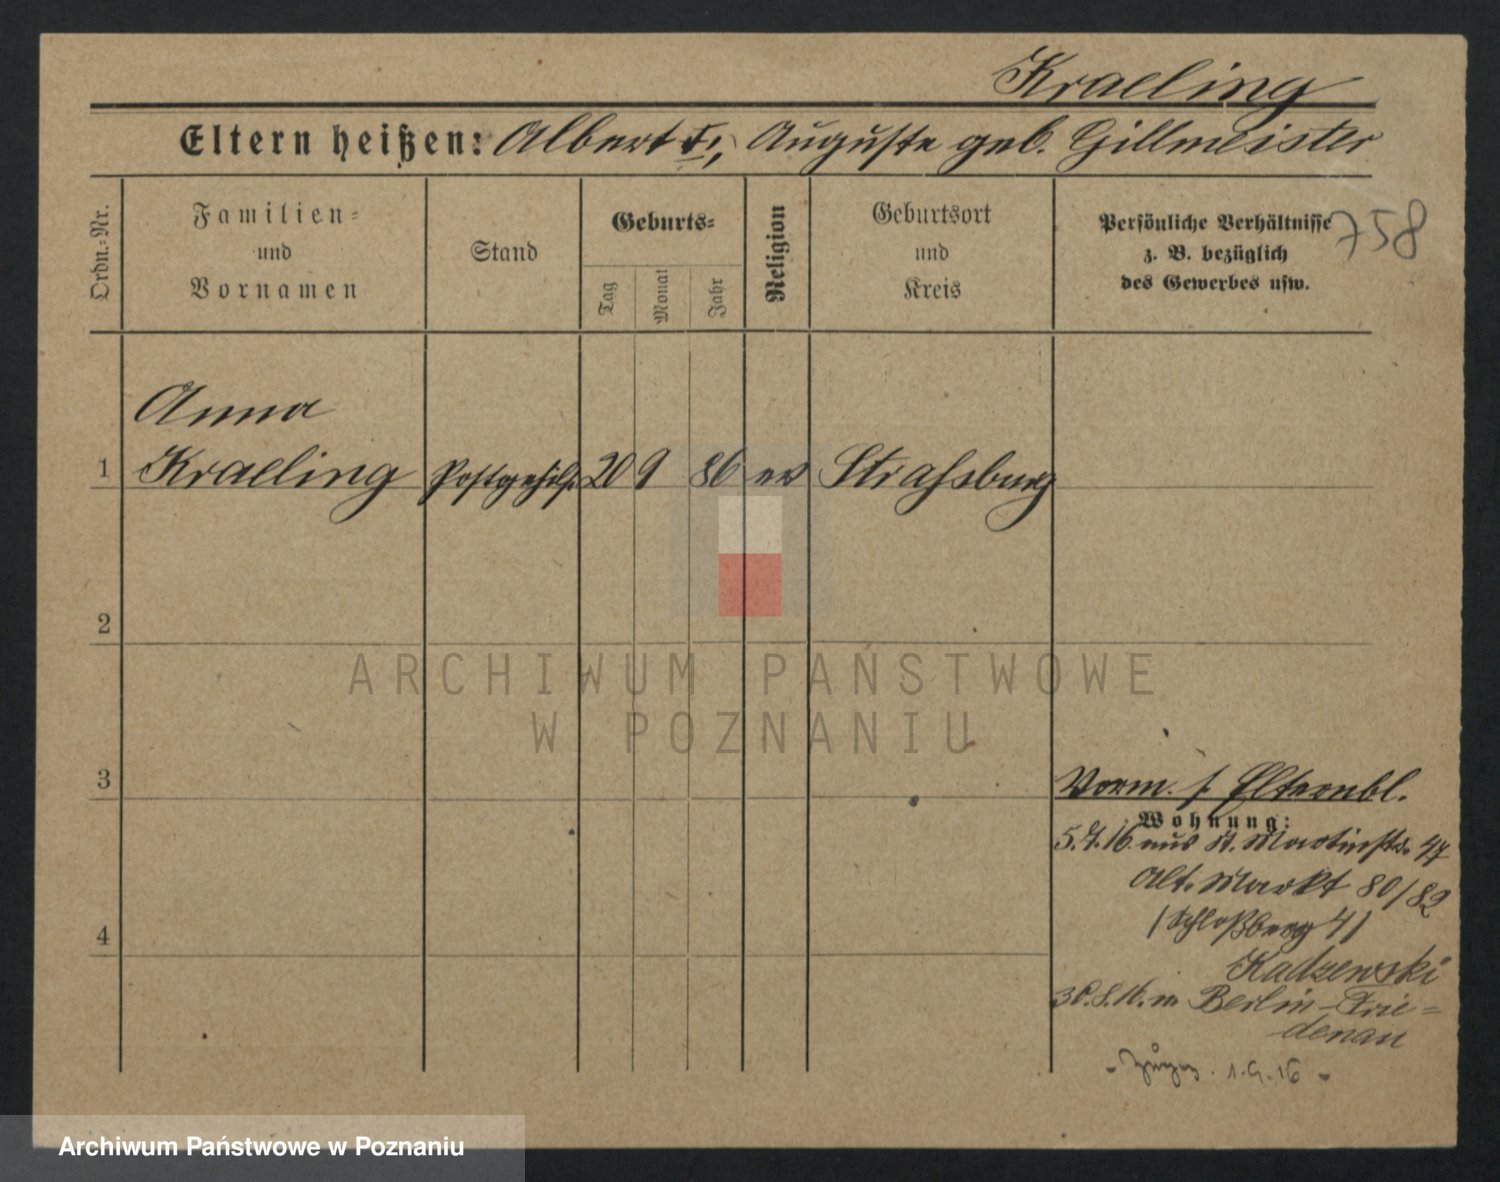 Kraeling
Eltern heißen: Albert †, Auguste geb. Gillmeister
Ordn.=Nr.
Familien=
und
Vornamen
Stand
Geburts=
Tag
Monat
Jahr
Religion
Geburtsort
und
Kreis
Persönliche Verhältnisse
z. B. bezüglich
des Gewerbes usw.
758
Anna
1 Kraeling Postgehilf. 20 9 86 ev Straßburg
2
ARCHIWUM PAŃSTWOWE
W POZNANIU
3
Vorm. s. Elternbl.
Wohnung:
5.7.16. aus St. Martinstr. 47
Alt. Markt 80/82
(Schloßberg 4)
4
Kadzewski
30.8.16. n. Berlin-Frie=
denau
1.9.16
Archiwum Państwowe w Poznaniu